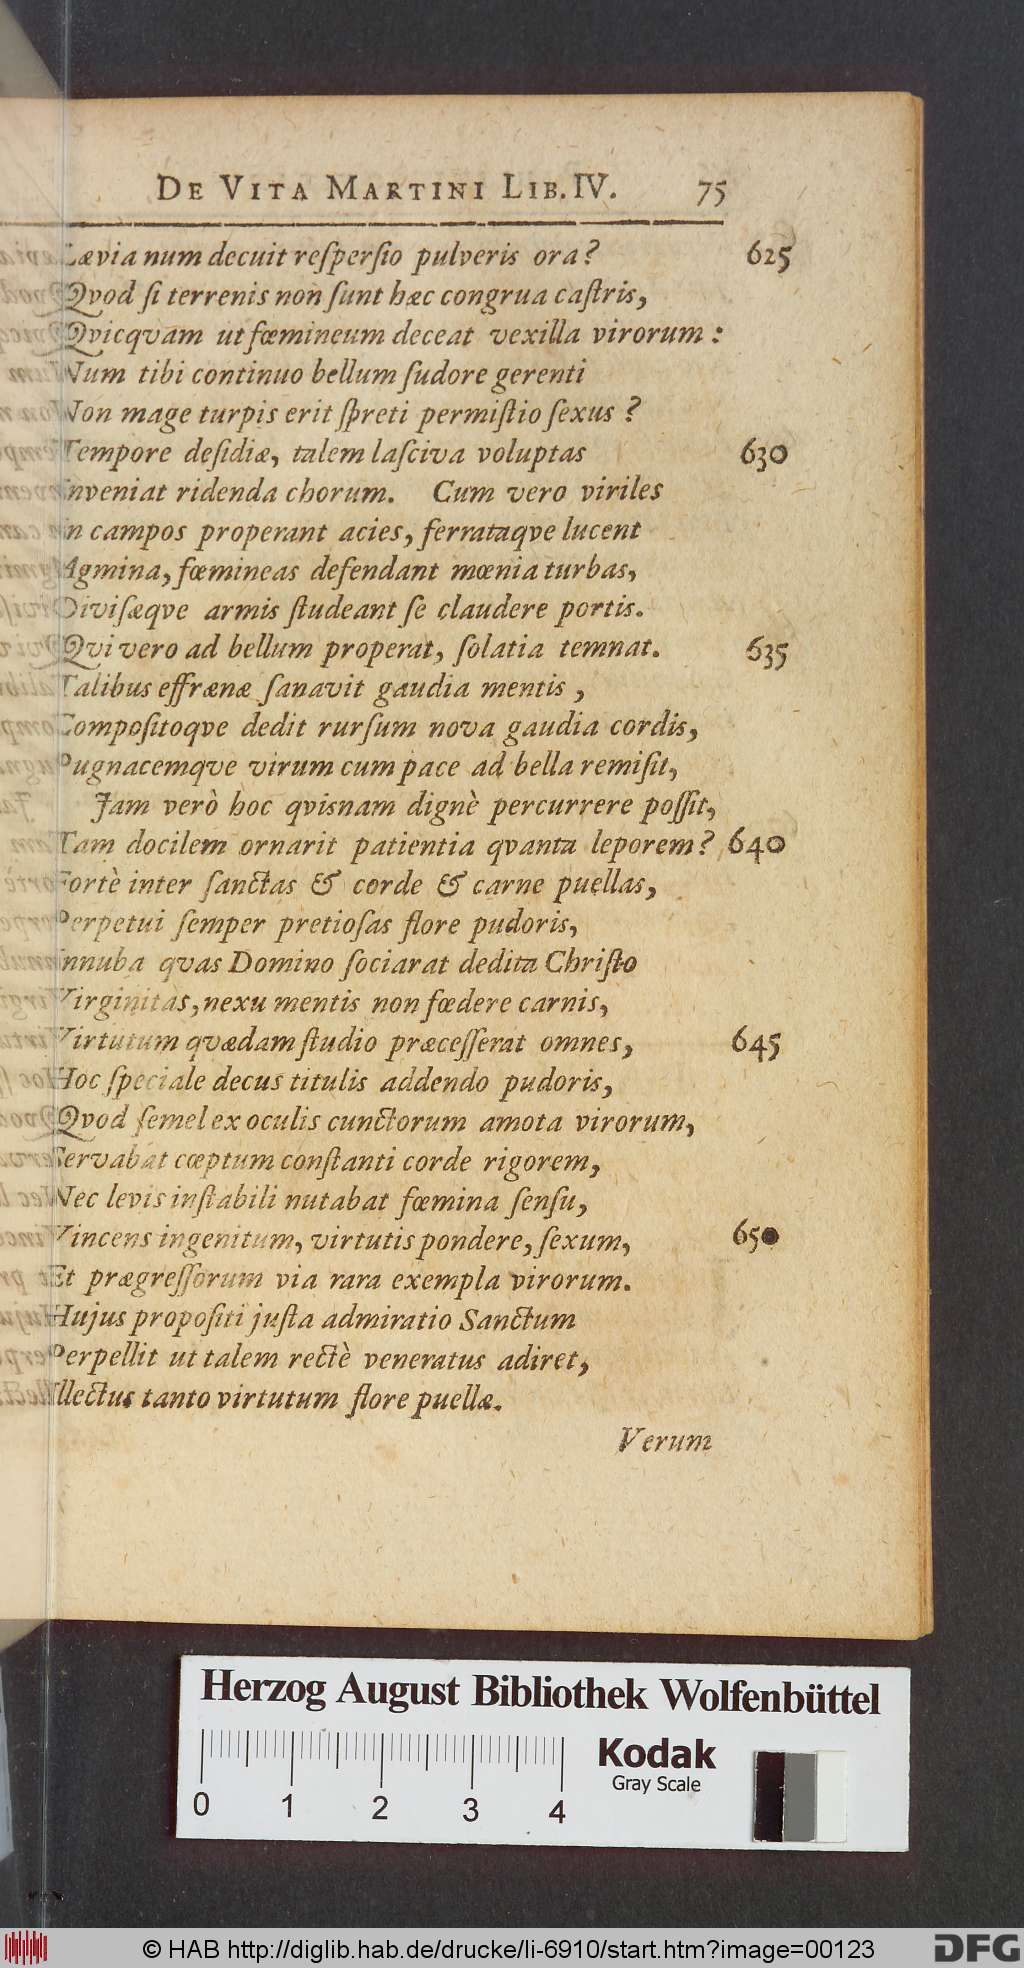 DE VITA MARTINI LIB. IV. 75
Lævia num decuit reſperſio pulveris ora? 625
Qvod ſi terrenis non ſunt hæc congrua caſtris,
Qvicqvam ut fœmineum deceat vexilla virorum:
Num tibi continuo bellum ſudore gerenti
Non mage turpis erit ſpreti permiſtio ſexus?
Tempore deſidiæ, talem laſciva voluptas 630
Inveniat ridenda chorum. Cum vero viriles
In campos properant acies, ferrataqve lucent
Agmina, fœmineas defendant mœnia turbas,
Diviſæqve armis ſtudeant ſe claudere portis.
Qvi vero ad bellum properat, ſolatia temnat. 635
Talibus effrænæ ſanavit gaudia mentis,
Compoſitoqve dedit rurſum nova gaudia cordis,
Pugnacemqve virum cum pace ad bella remiſit,
Jam verò hoc qvisnam dignè percurrere poſſit,
Tam docilem ornarit patientia qvanta leporem? 640
Fortè inter ſanctas & corde & carne puellas,
Perpetui ſemper pretioſas flore pudoris,
Innuba qvas Domino ſociarat dedita Chriſto
Virginitas, nexu mentis non fœdere carnis,
Virtutum qvædam ſtudio præceſſerat omnes, 645
Hoc ſpeciale decus titulis addendo pudoris,
Qvod ſemel ex oculis cunctorum amota virorum,
Servabat cœptum conſtanti corde rigorem,
Nec levis inſtabili nutabat fœmina ſenſu,
Vincens ingenitum, virtutis pondere, ſexum, 650
Et prægreſſorum via rara exempla virorum.
Hujus propoſiti juſta admiratio Sanctum
Perpellit ut talem rectè veneratus adiret,
Illectus tanto virtutum flore puellæ.
Verum
Herzog August Bibliothek Wolfenbüttel
Kodak
Gray Scale
0 1 2 3 4
© HAB http://diglib.hab.de/drucke/li-6910/start.htm?image=00123
DFG